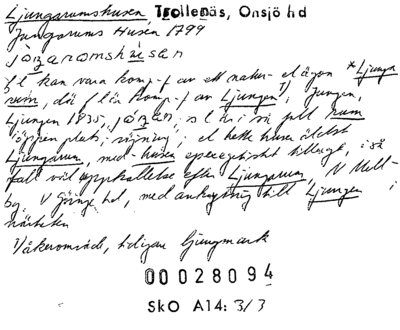 Ljungarumshusen, Trollenäs, Onsjö hd
Jungarums Husen 1794
fl kan vara komp. av ett natur- el ägon *Ljunga
rum, då f l in komp. av Ljungen 1), Jungen,
Ljungen 1835, s l in i si pll rum
öppen plats; röjning; el hette husen äldst
Ljungarum, med -husen epexegetiskt tillagt, i så
fall väl uppkallelse efter Ljungarum, N Mell-
by, V Göinge hd, med anknytning till Ljungen i
närheten
1) åkerområde, tidigare ljungmark
00028094
SkO A14: 3/3